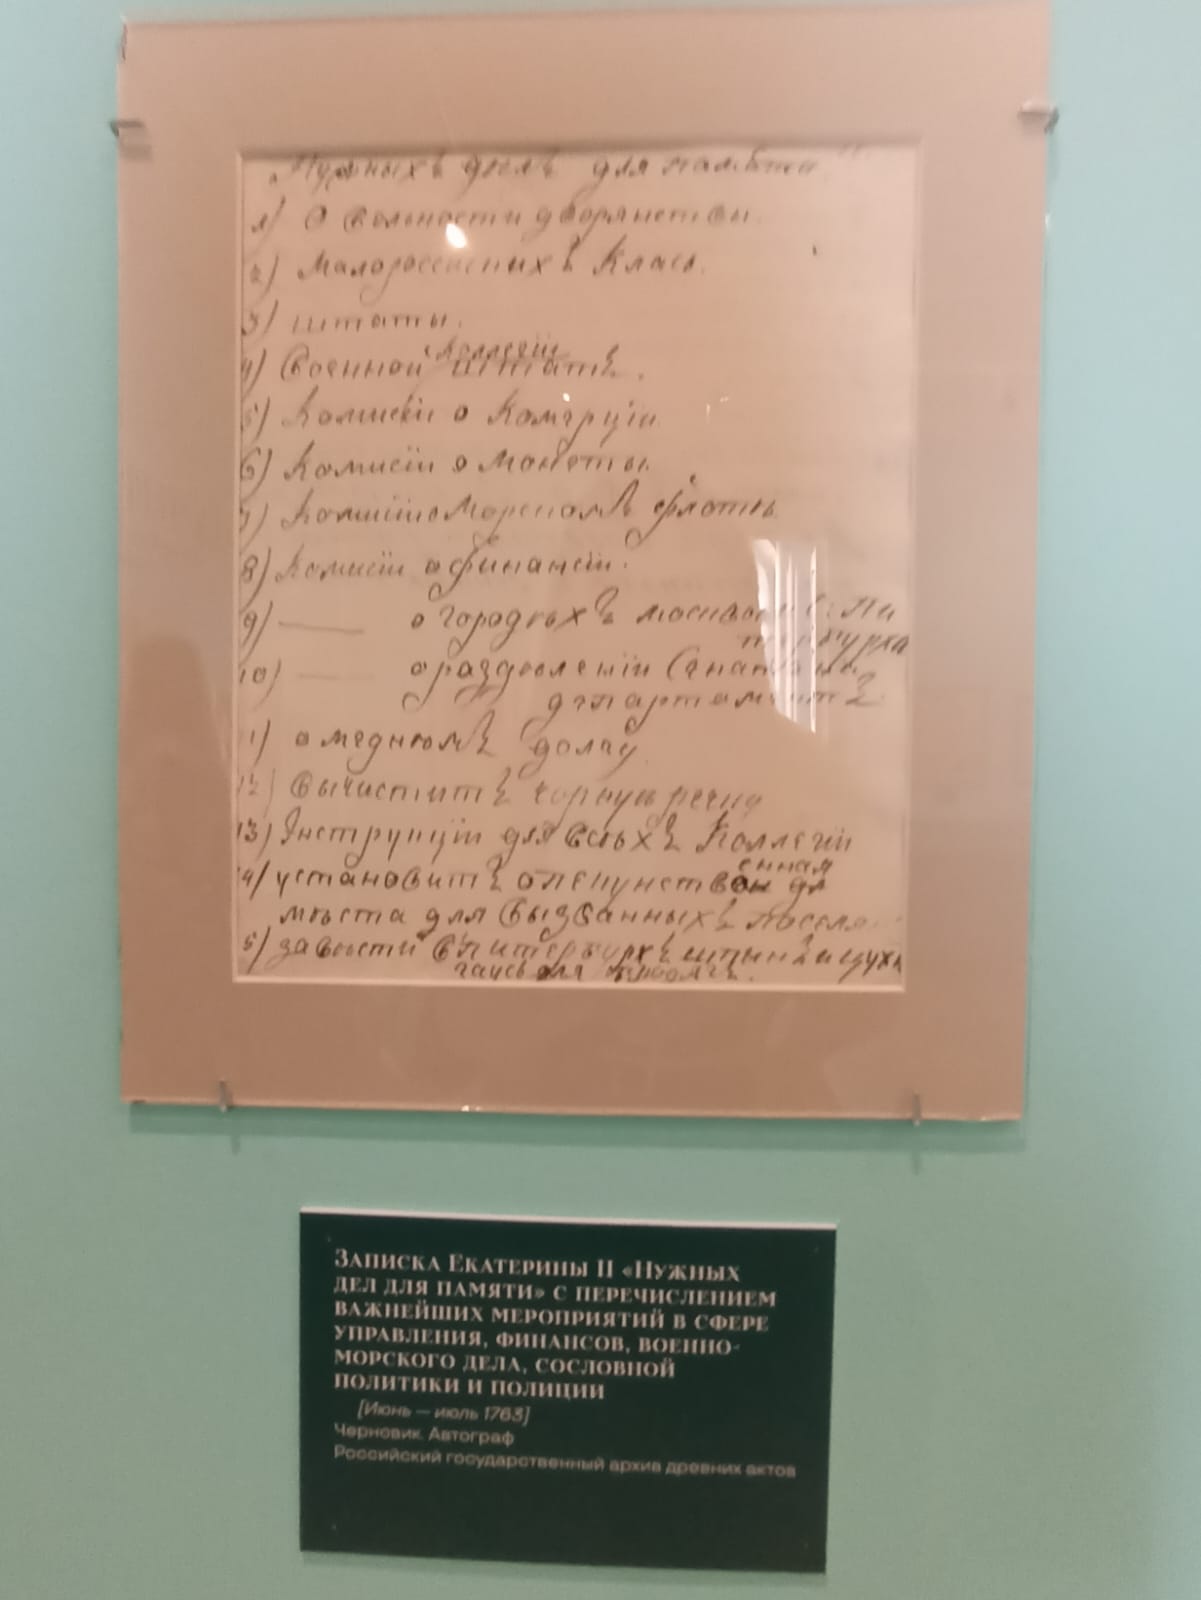 „Нужныхъ делъ для памяти"
1) О вольности дворянствы.
2) Малороссискихъ Класъ.
3) штаты.
4) Военной Коллегіи штатъ.
5) Комисіи о Комерціи
6) Комисіи о монеты.
7) Комисіи о Морскомъ флотѣ
8) Комисіи о финансіи.
9) —— о городѣхъ москвы и С: Пи
тербурха
10) —— о раздѣленіи Сената на
департаментъ
11) о медномъ долгу
12) Вычистить чорную речку
13) Инструкціи для всѣхъ Коллегіи
14) установить опекунство
мѣста для вызванныхъ
15) завѣсти в Питербурхъ
гаусъ для
Записка Екатерины II «Нужных
дел для памяти» с перечислением
важнейших мероприятий в сфере
управления, финансов, военно-
морского дела, сословной
политики и полиции
[Июнь — июль 1763]
Черновик. Автограф
Российский государственный архив древних актов